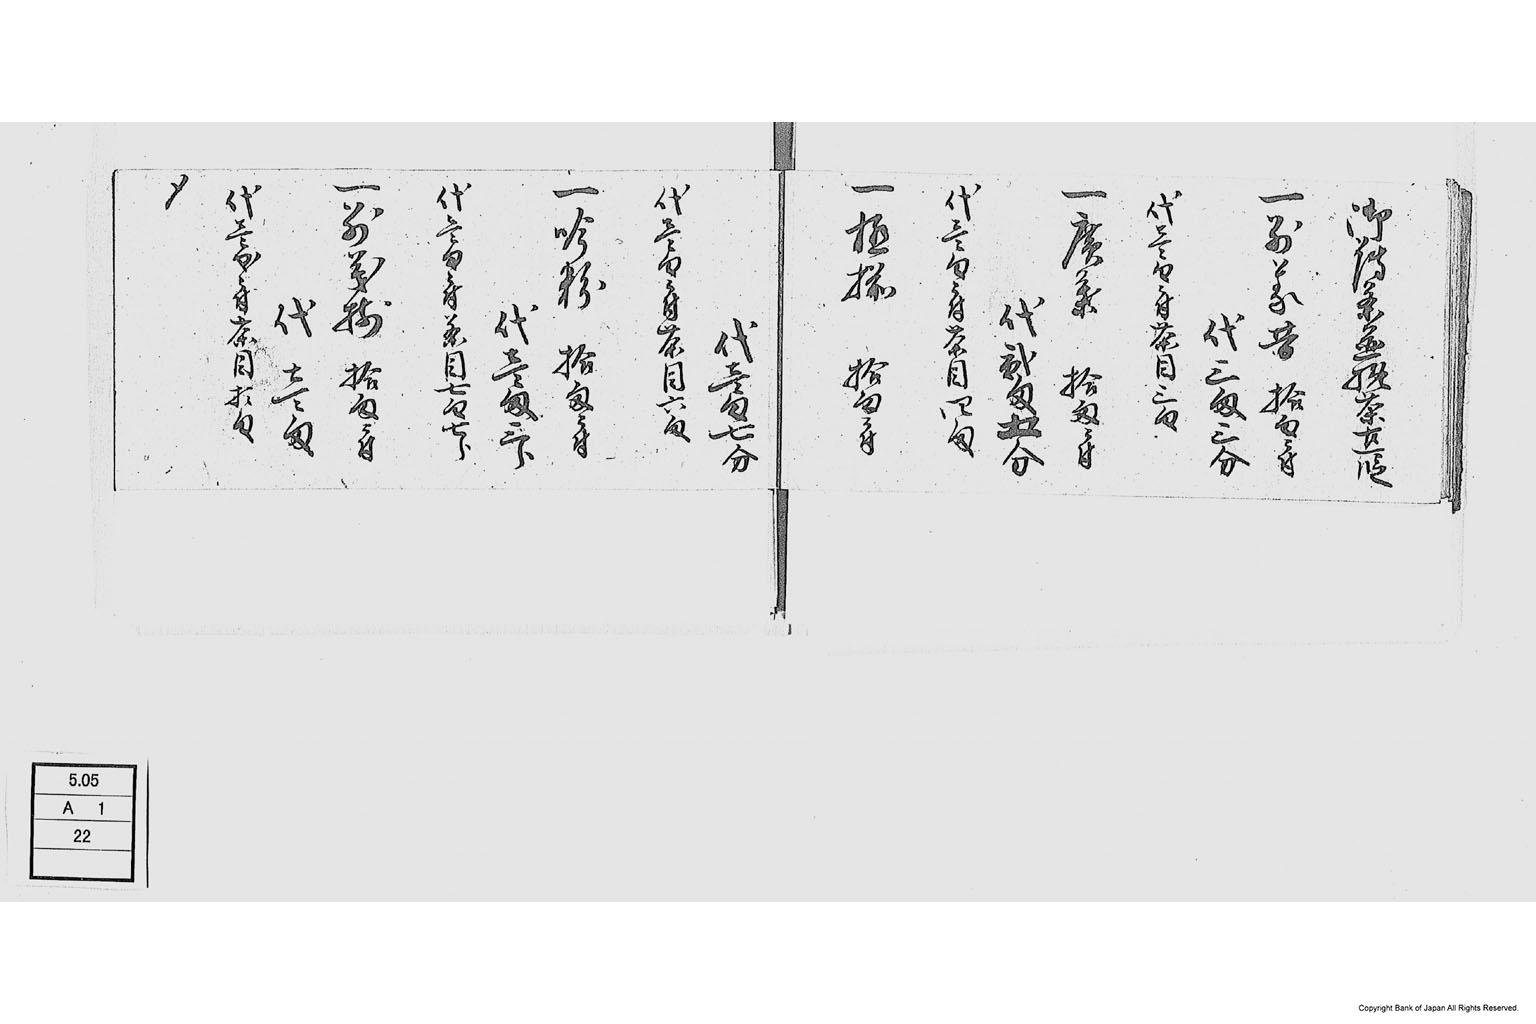 御薄茶並撰茶直段
一別義昔 拾匁ニ付
代三匁三分
代壱匁ニ付茶目三匁
一廣葉 拾匁ニ付
代弐匁五分
代壱匁ニ付茶目四匁
一極揃 拾匁ニ付
代壱匁七分
代壱匁ニ付茶目六匁
一吟粉 拾匁ニ付
代壱匁三卜
代壱匁ニ付茶目七匁七卜
一別義 拾匁ニ付
代壱匁
代壱匁ニ付茶目拾匁
〆
5.05
A 1
22
Copyright Bank of Japan All Rights Reserved.